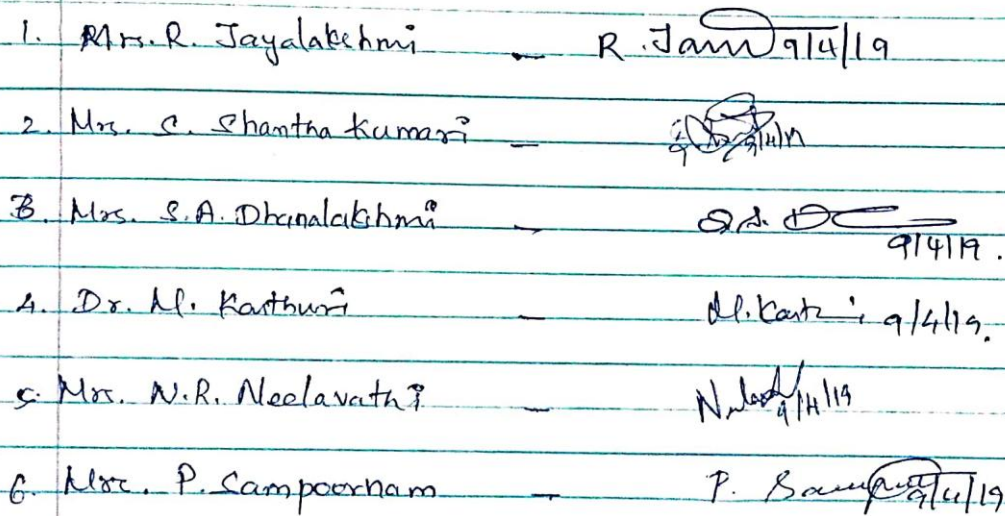 1. Mrs. R. Jayalakshmi - R. Jam 9/4/19
2. Mrs. S. Shantha Kumari - 9/4/19
3. Mrs. S.A. Dhanalakshmi - 9/4/19.
4. Dr. M. Kasthuri - M. Kast 9/4/19.
5. Mrs. N.R. Neelavathi - 9/4/19
6. Mrs. P. Sampoornam - P. 9/4/19